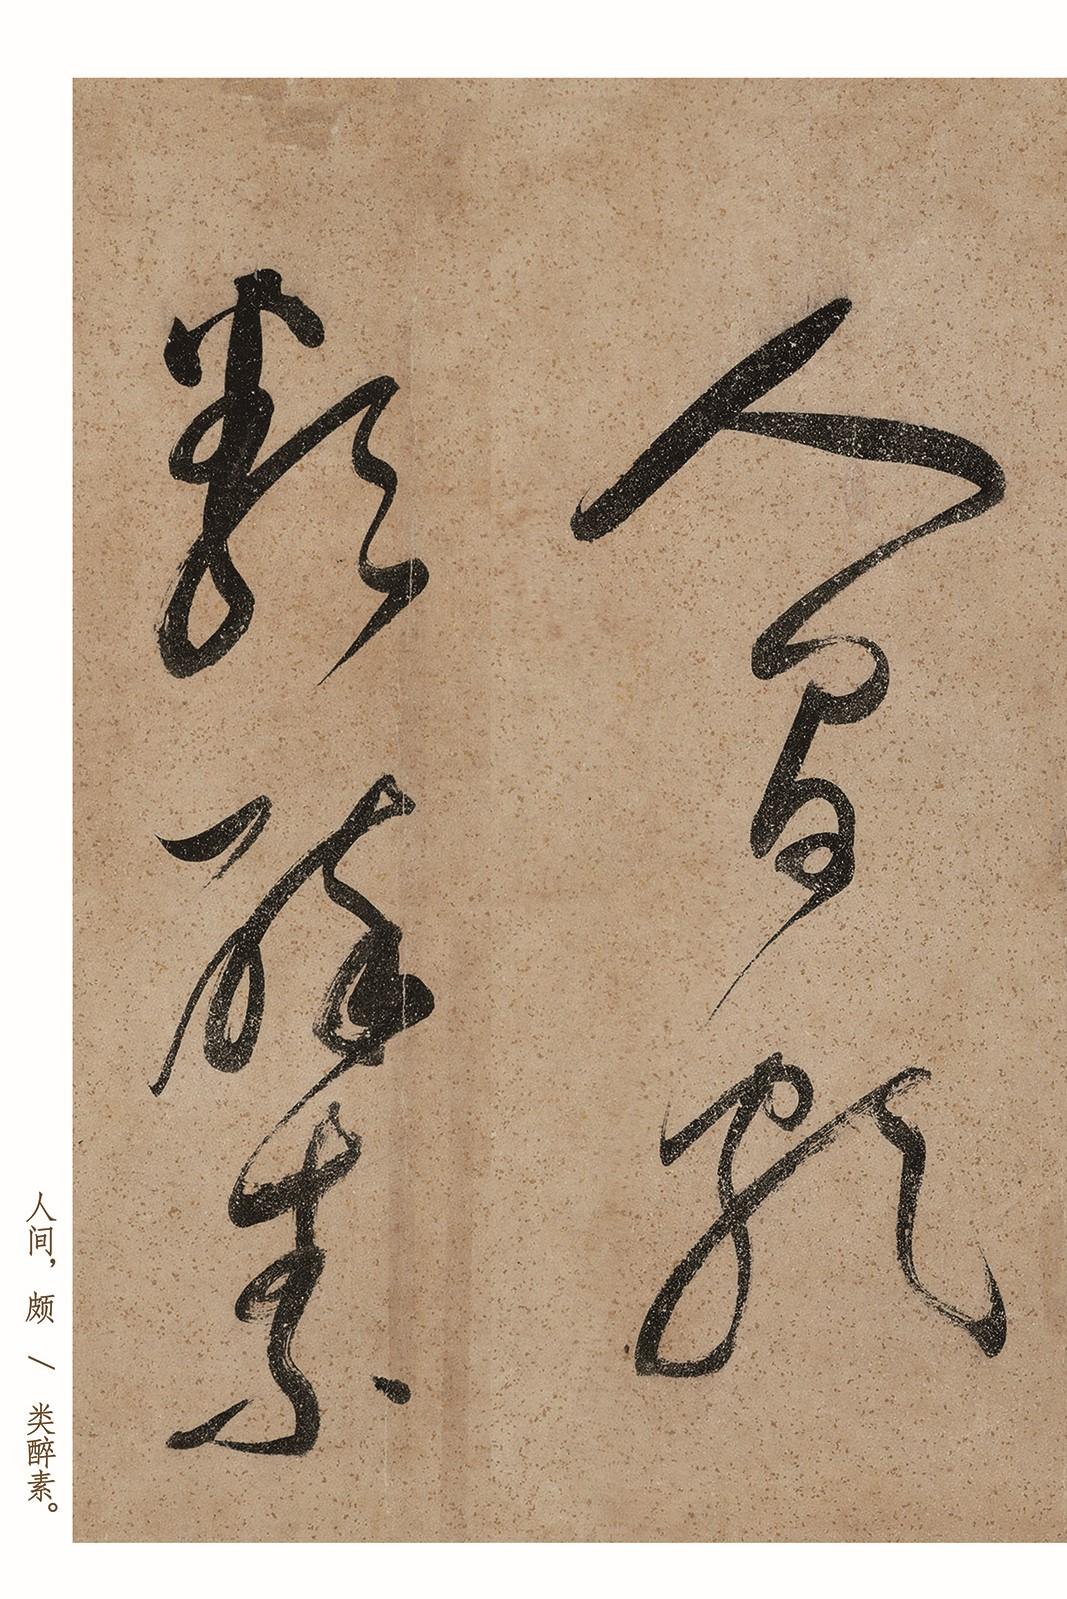 人間頗
類醉素
人间，颇／类醉素。